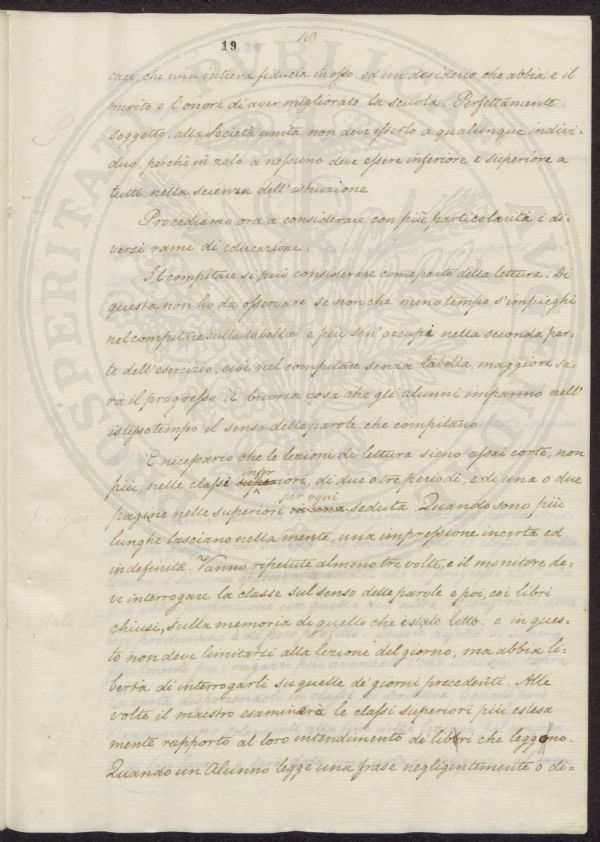 19
18
caci, che una intiera fiducia in esso, ed un desiderio che abbia e il
merito e l'onore di aver migliorato la scuola. Perfettamente
soggetto, alla Società unita, non deve esserlo a qualunque indivi-
duo, perchè in zelo a nessuno deve essere inferiore e superiore a
tutti nella scienza dell'istruzione
Procediamo ora a considerare con più particolarità i di-
versi rami di educazione.
Il compitare si può considerare come parte della lettura. Di
questa non ho da osservare se non che meno tempo s'impieghi
nel compitare sulla tabella e più sen'occupi nella seconda par-
te dell'esercizio, cioè nel compitare senza tabella, maggiore sa-
rà il progresso. È buona cosa che gli alunni imparino nell'
istesso tempo il senso delle parole che compitano
È necessario che le lezioni di lettura siano assai corte, non
infer
più nelle classi superiori, di due o tre periodi, e di una o due
per ogni
pagine nelle superiori in una seduta. Quando sono più
lunghe lasciano nella mente, una impressione incerta ed
indefinita. Vanno ripetute almeno tre volte, e il monitore de-
ve interrogare la classe sul senso delle parole e poi, coi libri
chiusi, sulla memoria di quello che è stato letto. e in ques-
to non deve limitarsi alla lezione del giorno, ma abbia li-
bertà di interrogarli su quelle de' giorni precedenti. Alle
volte il maestro esaminerà le classi superiori più estesa
mente rapporto al loro intendimento de' libri che leggono.
Quando un Alunno legge una frase negligentemente o di-